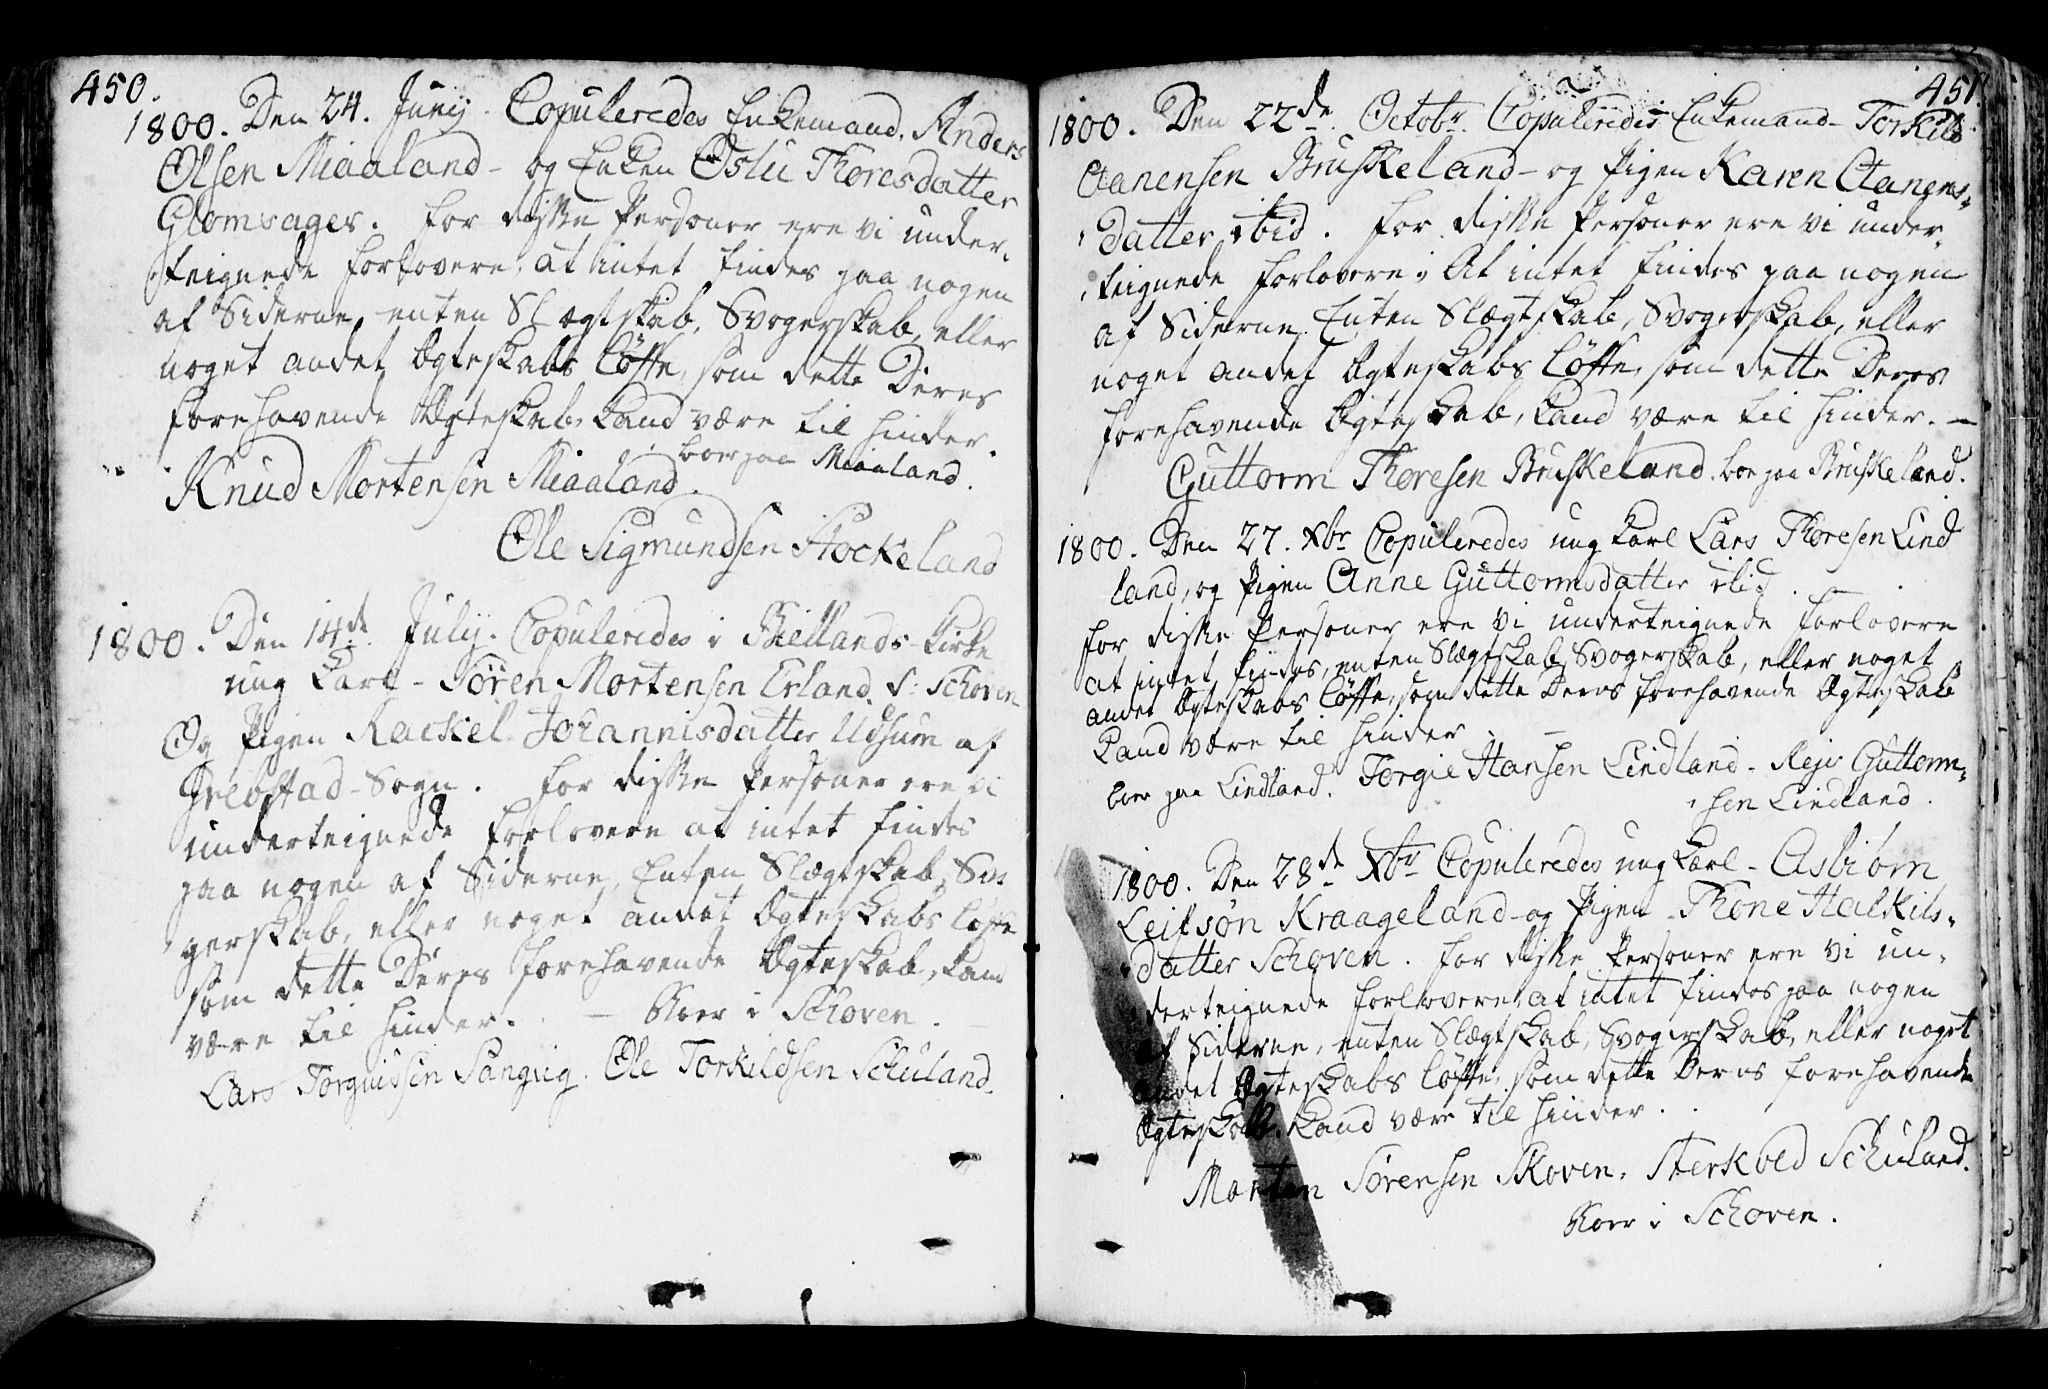 450.
1800. Den 24. Junij. Copuleredes Enkemand. Anders
Olsen Miaaland - og Enken Oslu Thoresdatter
Glomsager. For disse Personer ere vi under-
teignede Forlovere, at intet findes paa nogen
af Siderne, enten Slægtskab, Svogerskab, eller
noget andet Ægteskabs Løfte, som dette Deres
forehavende Ægteskab, kand være til hinder.
boer paa Miaaland.
Knud Mortensen Miaaland.
Ole Sigmundsen Stockeland
1800. Den 14de July. Copuleredes i Kirke
ung Karl - Sören Mortensen Erland. S: Schoven
Og Pigen Rackel Johannisdatter Udsum af
Grebstad - Sogn. For disse Personer ere vi
underteignede Forlovere at intet findes
paa nogen af Siderne, Enten Slægtskab, Svo-
gerskab, eller noget andet Ægteskabs Løfte
som dette Deres forehavende Ægteskab, kand
være til hinder. - Boer i Schoven.
Lars Torguissen Sangvig. Ole Torkildsen Schuland.
451.
1800. Den 22de Octobr. Copuleredes Enkemand - Torkild
Aanensen Bruskeland - og Pigen Karen Aanens-
datter ibid. For disse Personer ere vi under-
teignede Forlovere, At intet findes paa nogen
af Siderne Enten Slægtskab, Svogerskab, eller
noget andet Ægteskabs Løfte, som dette Deres
forehavende Ægteskab, kand være til hinder. -
Guttorm Thoresen Bruskeland. boe paa Bruskeland.
1800. Den 27. Xbr Copuleredes ung Karl Lars Thoresen Lind
land, og Pigen Anne Guttormsdatter ibid.
For disse Personer ere vi underteignede Forlovere
at intet findes, enten Slægtskab, Svogerskab, eller noget
andet Ægteskabs Løfte, som dette Deres forehavende Ægteskab
kand være til hinder. -
boer paa Lindland. Torgie Hansen Lindland - Rejer Guttorm-
sen Lindland.
1800. Den 28de Xbr Copuleredes ung Karl - Asbiörn
Leifsøn Kraageland - og Pigen - Thone Halkils-
datter Schoven. For disse Personer ere vi un-
derteignede Forlovere, at intet findes paa nogen
af Siderne, enten Slægtskab, Svogerskab, eller noget
andet Ægteskabs Løfte, som dette Deres forehavende
Ægteskab, kand være til hinder.
Morten Sörensen Skoven. Sterkoed Schuland.
Boer i Schoven.